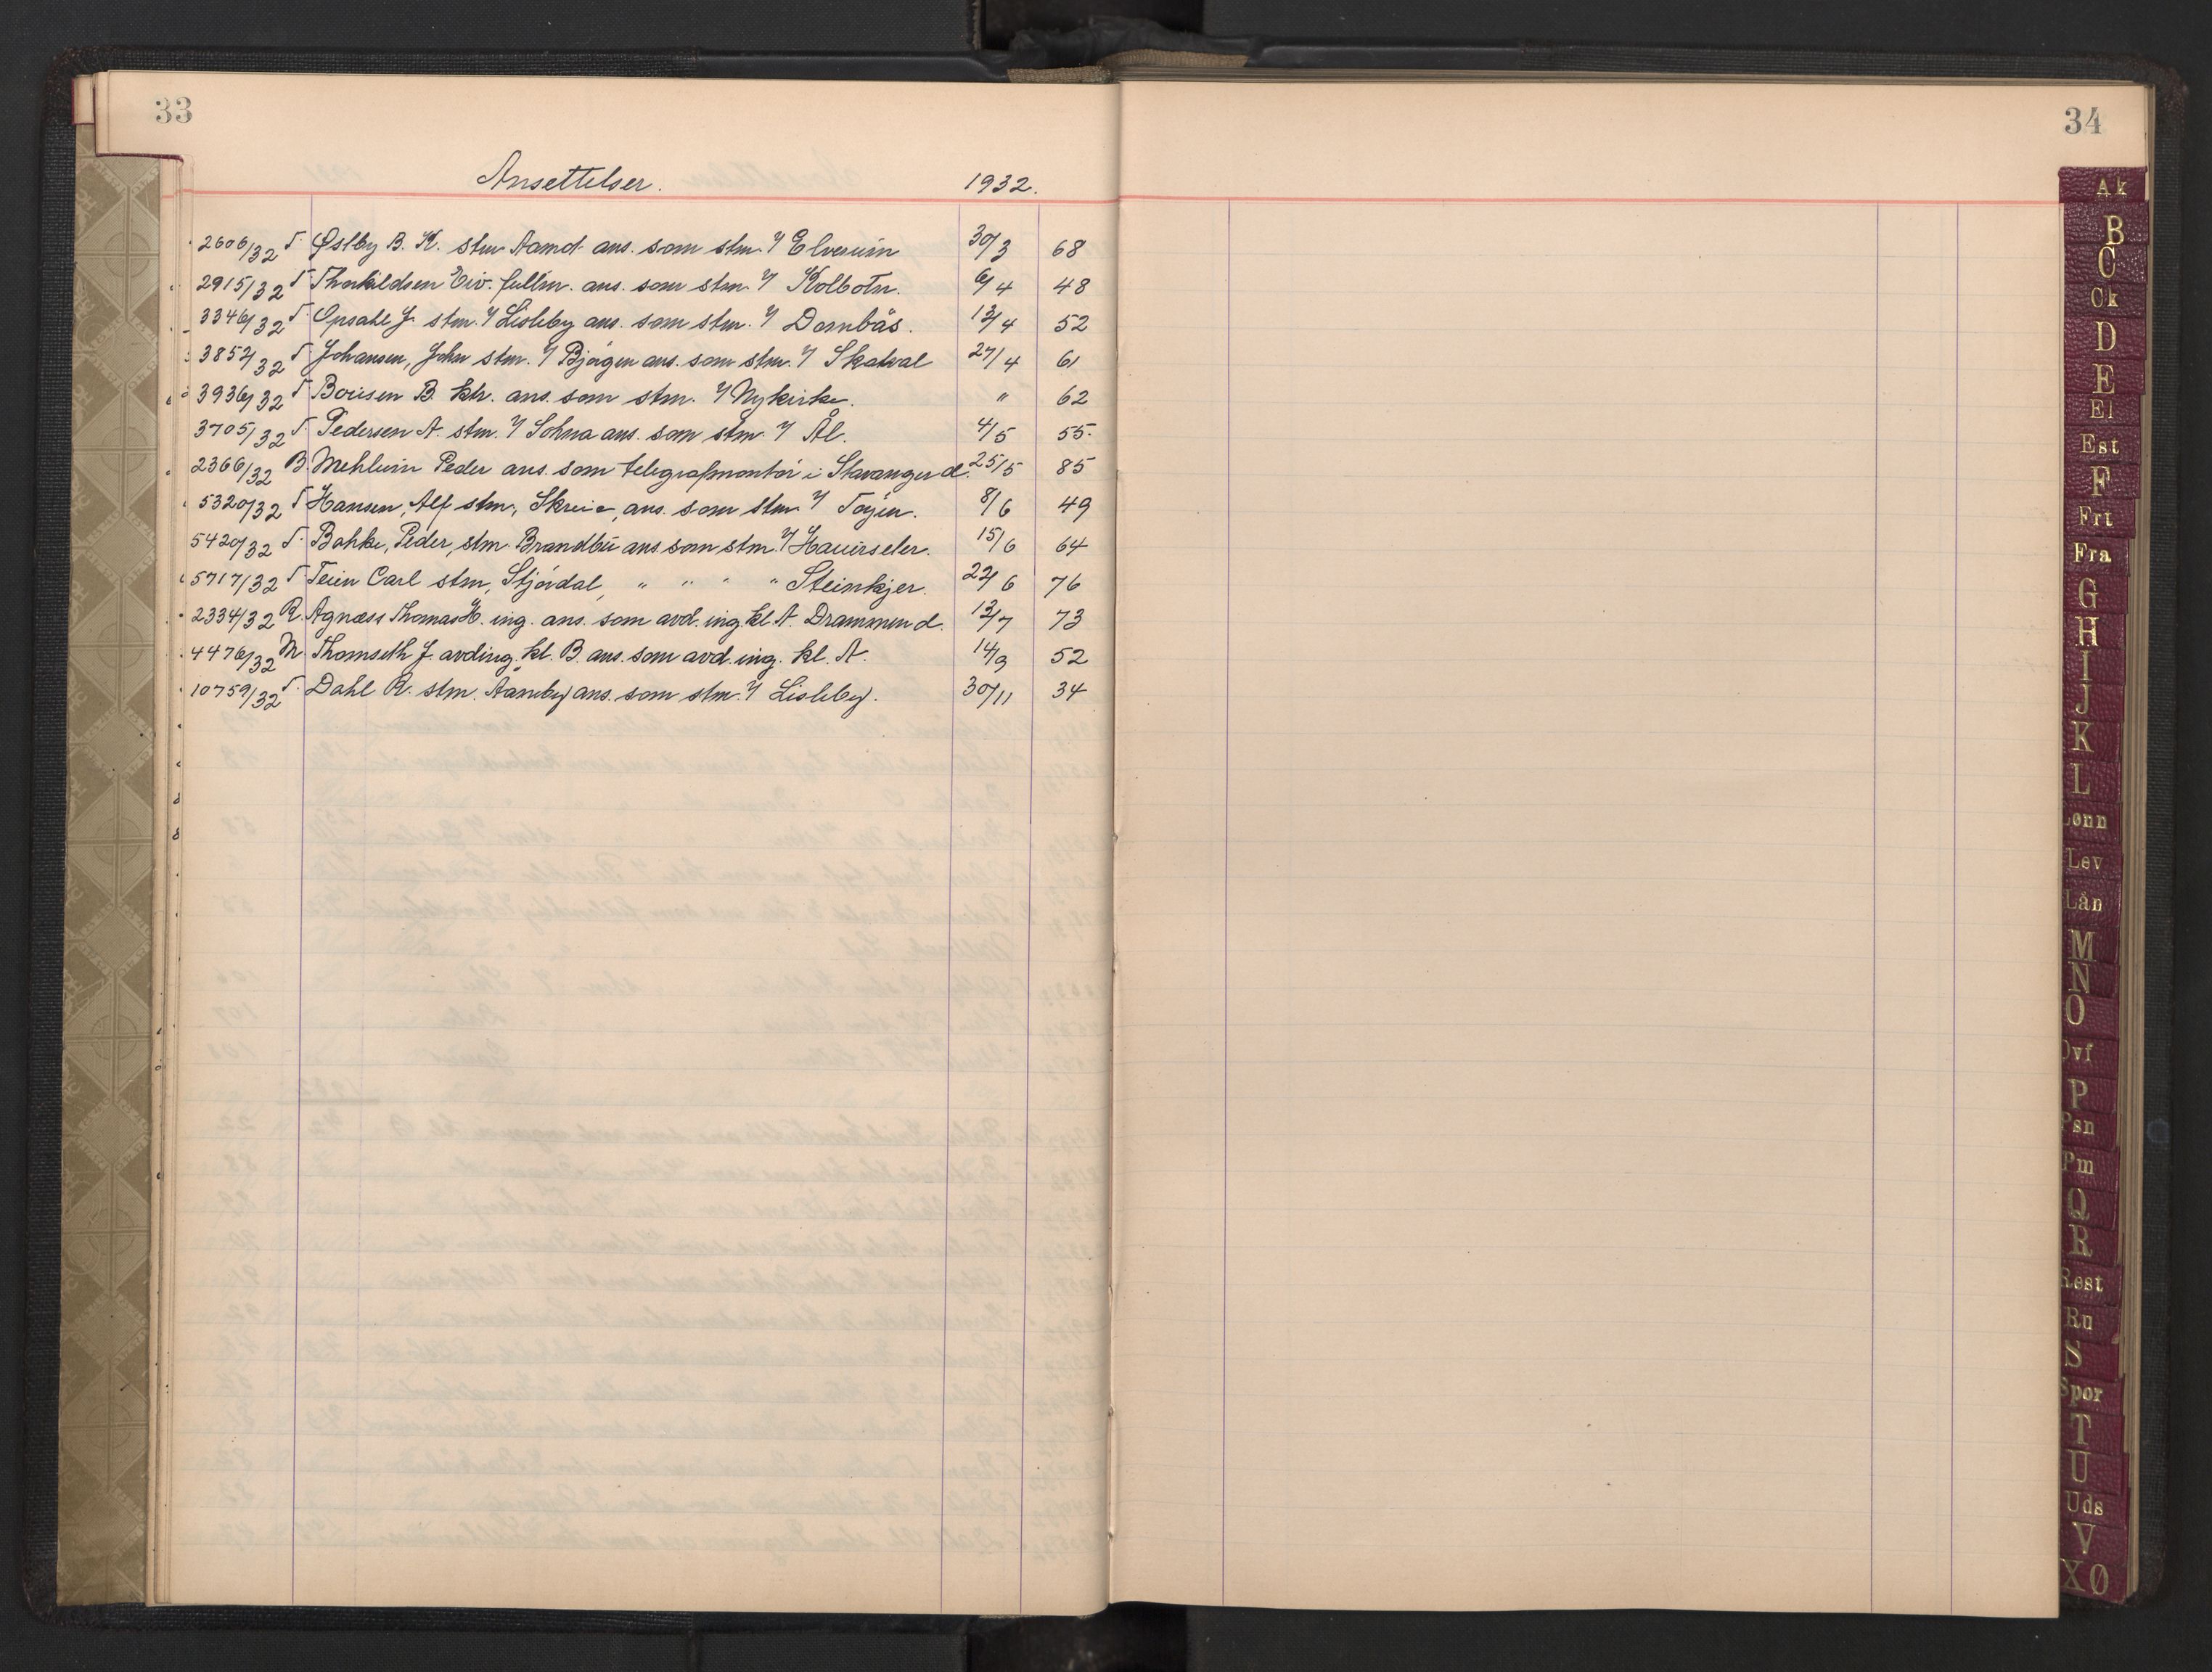 33
Ansettelser. 1932.
2606/32 T. Østby B. K. stm Aamot ans. som stm. v/ Elverum 30/3 68
2915/32 T Thorkildsen Eiv. fullm. ans. som stm. v/ Kolbotn. 6/4 48
3346/32 T. Opsahl J. stm. v/ Lisleby ans. som stm. v/ Dombås. 13/4 52
3852/32 T Johansen, John stm. v/ Bjørgen ans. som stm. v/ Skatval 27/4 61
3936/32 T Boiesen B. ktr. ans. som stm. v/ Nykirke. " 62
3705/32 T. Pedersen A. stm. v/ Sokna ans. som stm. v/ Ål. 4/5 55.
2366/32 B. Mehlum Peder ans. som telegrafmontør i Stavanger d. 25/5 85
5320/32 T Hansen, Alf stm., Skreia, ans. som stm. v/ Tøyen. 8/6 49
5420/32 T. Bakke, Peder, stm. Brandbu ans som stm. v/ Hauerseter. 15/6 64
5717/32 T Teien Carl stm, Stjørdal, " " " " Steinkjer. 22/6 76
2334/32 R. Agnæss Thomas H. ing. ans. som avd. ing. kl. A. Drammen d. 13/7 73
4476/32 M. Thomseth J. avding. kl. B. ans. som avd. ing. kl. A. 14/9 52
10759/32 T. Dahl R. stm. Aaneby ans. som stm. v/ Lisleby. 30/11 34
34
Ak
B
C
Ck
D
E
El
Est
F
Frt
Fra
G
H
I
J
K
L
Lønn
Lev
Lån
M
N
O
Ovf
P
Psn
Pm
Q
R
Rest
Ru
S
Spor
T
U
Uds
V
XØ